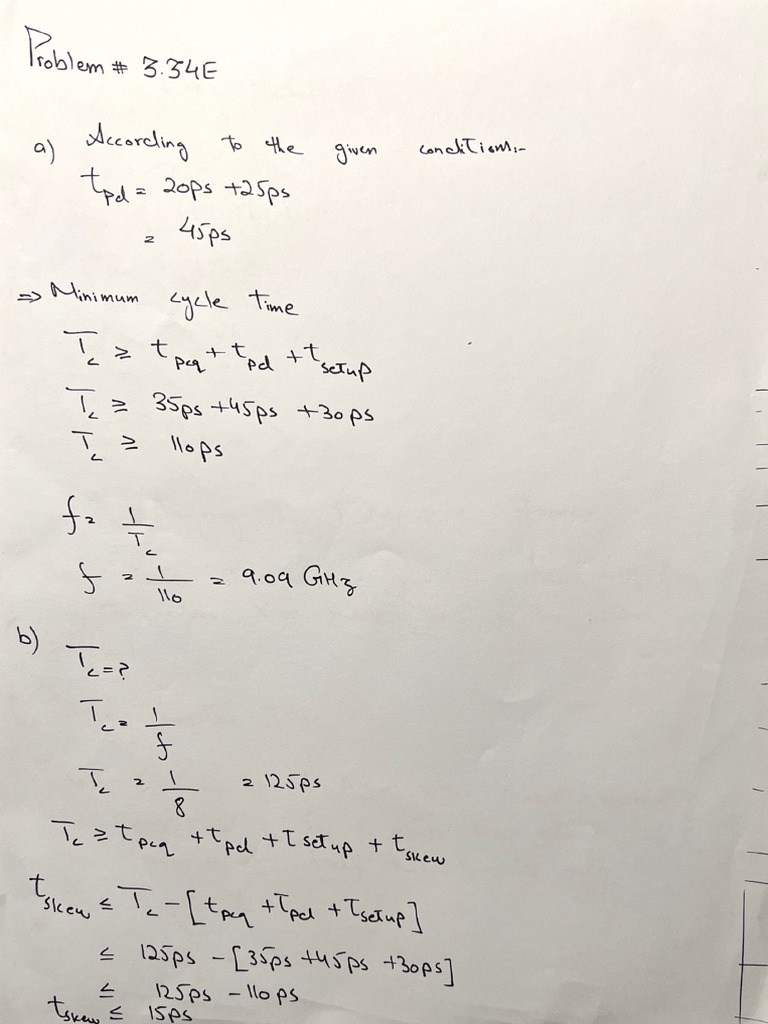 Problem # 3.34E
a) According to the given conditions:-
tpd = 20ps + 25ps
= 45ps
⇒ Minimum cycle time
Tc ≥ tpcq + tpd + tsetup
Tc ≥ 35ps + 45ps + 30ps
Tc ≥ 110ps
f = 1/Tc
f = 1/110 = 9.09 GHz
b) Tc = ?
Tc = 1/f
Tc = 1/8 = 125ps
Tc ≥ tpcq + tpd + Tsetup + tskew
tskew ≤ Tc - [tpcq + Tpd + Tsetup]
≤ 125ps - [35ps + 45ps + 30ps]
≤ 125ps - 110ps
tskew ≤ 15ps